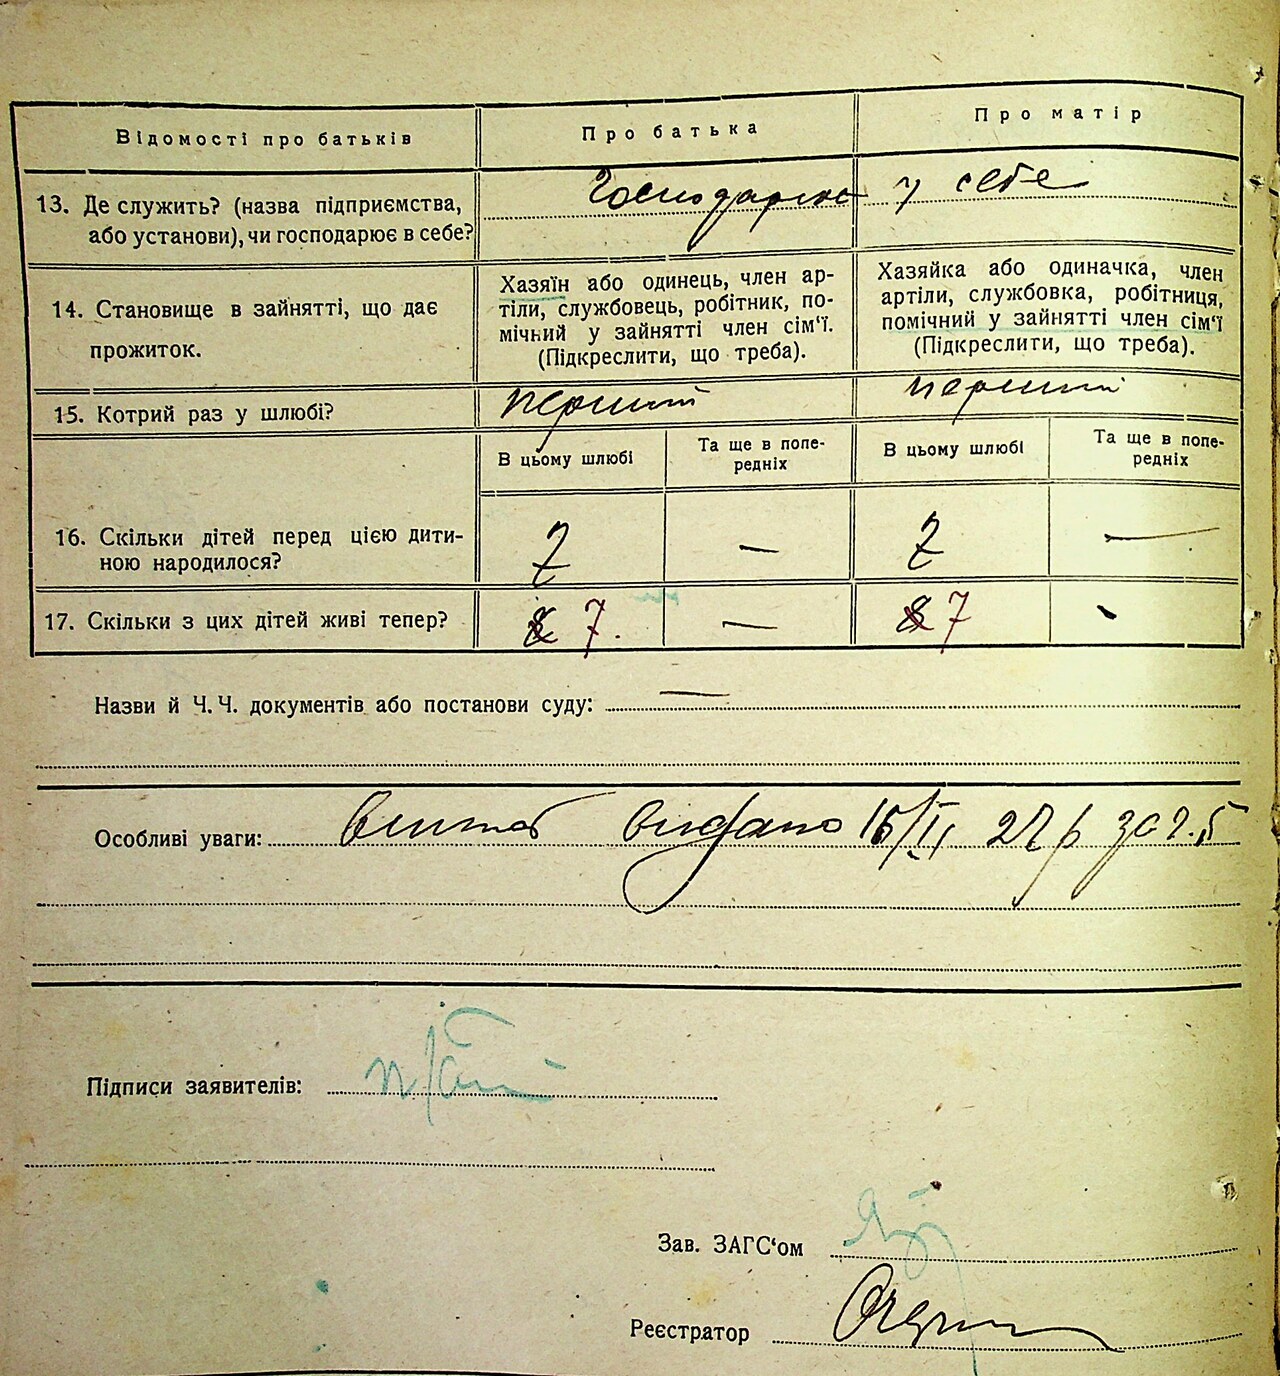 Відомості про батьків
Про батька
Про матір
13. Де служить? (назва підприємства,
або установи), чи господарює в себе?
Господарює у себе
14. Становище в зайнятті, що дає
прожиток.
Хазяїн або одинець, член ар-
тіли, службовець, робітник, по-
мічний у зайнятті член сім'ї.
(Підкреслити, що треба).
Хазяйка або одиначка, член
артіли, службовка, робітниця,
помічний у зайнятті член сім'ї
(Підкреслити, що треба).
15. Котрий раз у шлюбі?
перший
перший
В цьому шлюбі
Та ще в попе-
редніх
В цьому шлюбі
Та ще в попе-
редніх
16. Скільки дітей перед цією дити-
ною народилося?
7 — 7 —
17. Скільки з цих дітей живі тепер?
8 7. — 8 7 -
Назви й Ч. Ч. документів або постанови суду: —
Особливі уваги: видано 15/II 27 р за ч. 5
Підписи заявителів:
Зав. ЗАГС'ом
Реєстратор